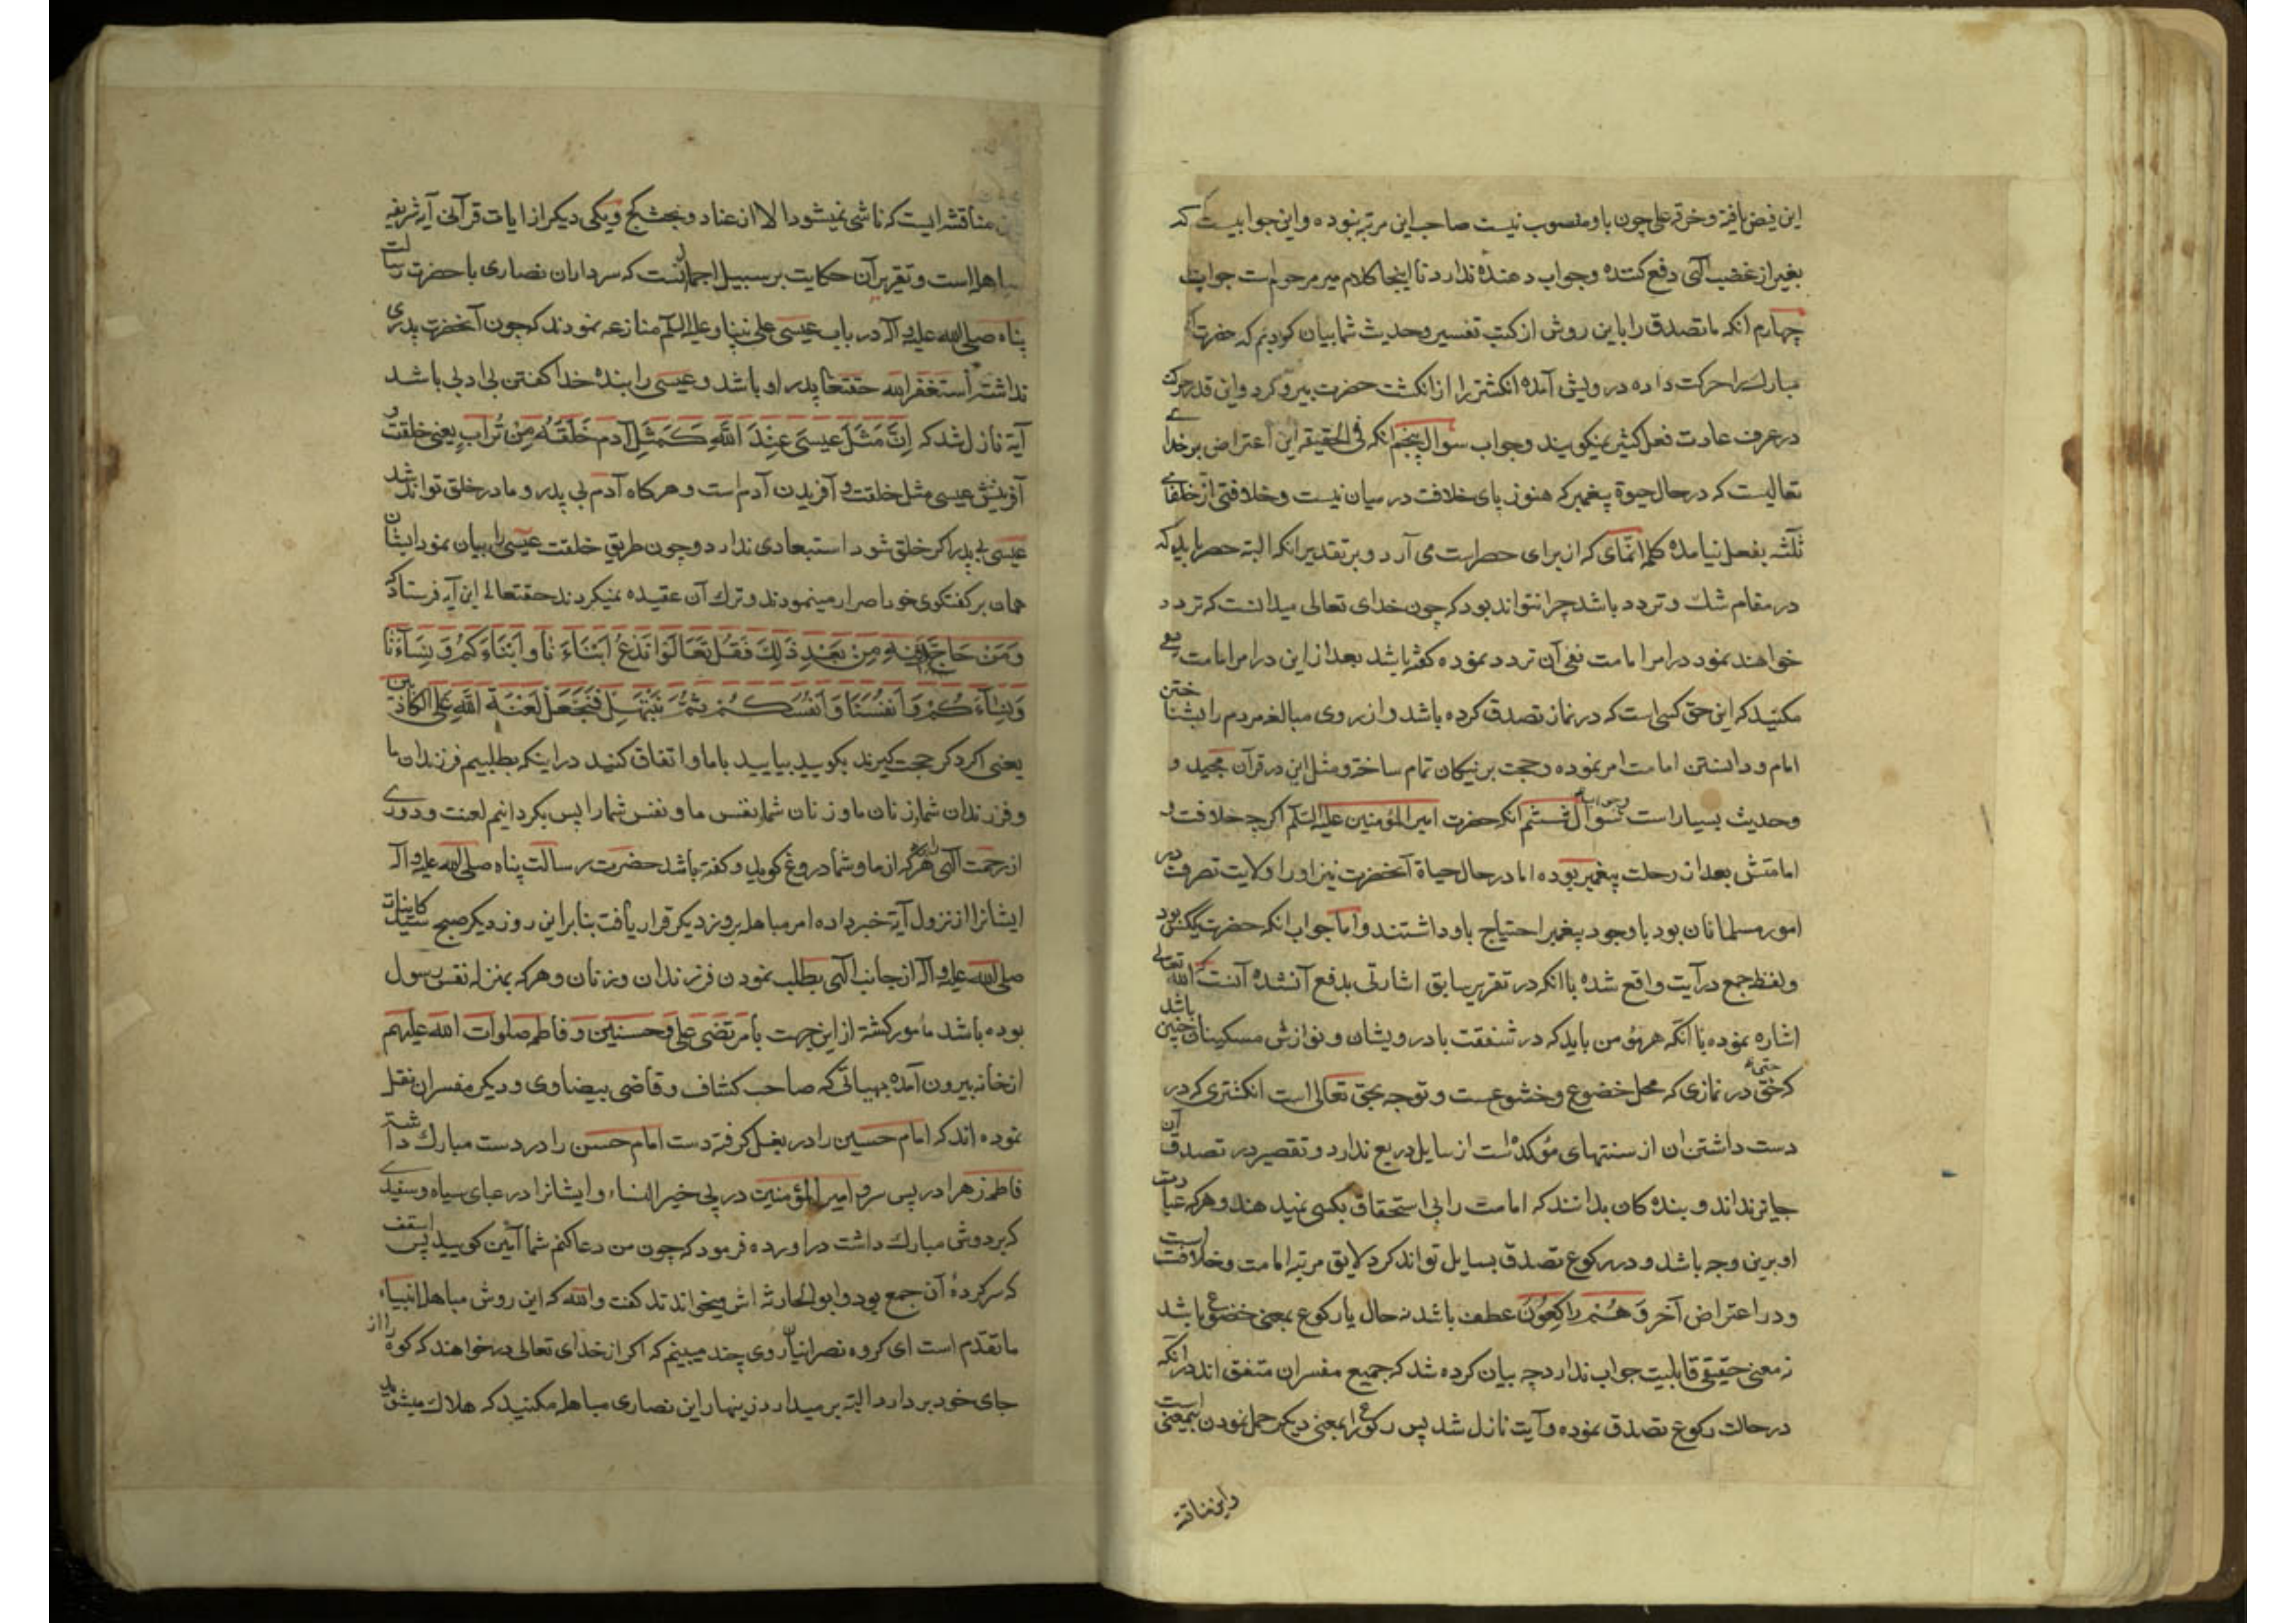 این فیض یافته و خرقه علی چون باو منصوب نیست صاحب این مرتبه نبوده و این جوابیست که
بغیر از غضب الهی دفع کننده و جواب دهنده ندارد تا اینجا کلام میر مرحوم است جواب
چهارم آنکه ما تصدق را باین روش از کتب تفسیر و حدیث شما بیان کردیم که حضرت
مبارک را حرکت داده درویش آمده انکشتر را از انکشت حضرت بیرو کرد و این قدر حرکت
در عرف عادت فعل کثیر نمیکویند و جواب سوال پنجم آنکه فی الحقیقه این اعتراض بر خدای
تعالیست که در حال حیوة پیغمبر که هنوز پای خلافت در میان نیست و خلافتی از خلفای
ثلثه بفعل نیامده کلمه انمای که از برای حصر است می آرد و بر تقدیر آنکه البته حصر باید که
در مقام شک و تردد باشد چرا نتواند بود که چون خدای تعالی میدانست که تردد
خواهند نمود در امر امامت نفی آن تردد نموده کفته باشد بعد از این در امر امامت
مکنید که این حق کسی است که در نماز تصدق کرده باشد و از روی مبالغه مردم را بشناختن
امام و دانستن امامت امر نموده و حجت بر نیکان تمام ساخته و مثل این در قرآن مجید و
وحدیث بسیار است وجواب سوال ششم آنکه حضرت امیر المؤمنین علیه السلام اکرچه خلافت و
امامتش بعد از رحلت پیغمبر بوده اما در حال حیاة آنحضرت نیز او را ولایت تصرف در
امور مسلمانان بود با وجود پیغمبر احتیاج باو داشتند و اما جواب آنکه حضرت یکی بود
ولفظ جمع در آیت واقع شده با آنکه در تقریر سابق اشارتی بدفع آن شده آنست که الله تعالی
اشاره نموده با آنکه هر مؤمن باید که در شفقت با درویشان و نوازش مسکینان چنین باشد
که حتی در نمازی که محل خضوع و خشوعست و توجه بحق تعالی است انکشتری که در
دست داشتن ان از سنتهای مؤکده است از سایل دریغ ندارد و تقصیر در تصدق آن
جایز نداند و بنده کان بدانند که امامت را بی استحقاق بکسی نمیدهند و هر که عبادت
او برین وجه باشد و در رکوع تصدق بسایل تواند کرد لایق مرتبه امامت و خلافت است
و در اعتراض آخر وَهُمْ رَاکِعُونَ عطف باشد نه حال یا رکوع بمعنی خضوع باشد
نه معنی حقیقی قابلیت جواب ندارد چه بیان کرده شد که جمیع مفسران متفق اند در آنکه
در حالت رکوع تصدق نموده و آیت نازل شد پس رکوع را بمعنی دیکر حمل نمودن بیمعنی است
و این مناقشه
مناقشه ایست که ناشی نمیشود الا از عناد و بحث کج و یکی دیکر از ایات قرآنی آیه شریفه
مباهله است و تقریر آن حکایت بر سبیل اجمال آنست که سرداران نصاری با حضرت رسالت
پناه صلی الله علیه و آله در باب عیسی علی نبینا و علیه السلم منازعه نمودند که چون آنحضرت پدری
نداشت أستغفر الله حقتعالی پدر او باشد و عیسی را بنده خدا کفتن بی ادبی باشد
آیه نازل شد که اِنَّ مَثَلَ عیسَی عِنْدَ اللَّهِ کَمَثَلِ آدَم خَلَقَهُ مِنْ تُرَابٍ یعنی خلقت و
آفرینش عیسی مثل خلقت و آفریدن آدم است و هرکاه آدم بی پدر و مادر خلق تواند شد
عیسی بی پدر اکر خلق شود استبعادی ندارد و چون طریق خلقت عیسی را بیان نمود ایشان
همان بر کفتکوی خود اصرار مینمودند و ترک آن عقیده نمیکردند حقتعالی این آیه فرستاد که
وَمَنْ حَاجَّکَ فیهِ مِنْ بَعْدِ ذَلِکَ فَقُلْ تَعَالَوْا نَدْعُ اَبْنَاءَنَا وَاَبْنَاءَکُمْ وَنِسَاءَنَا
وَنِسَاءَکُمْ وَاَنْفُسَنَا وَاَنْفُسَکُمْ ثُمَّ نَبْتَهِلْ فَنَجْعَلْ لَعْنَةَ اللَّهِ عَلَی الکَاذِبین
یعنی اکر دکر حجت کیرند بکویید بیایید با ما و اتفاق کنید در اینکه بطلبیم فرزندان ما
و فرزندان شما و زنان ما و زنان شما و نفس ما و نفس شما را پس بکردانیم لعنت و دوری
از رحمت الهی هرکه از ما و شما دروغ کوید و کفته باشد حضرت رسالت پناه صلی الله علیه و آله
ایشانرا از نزول آیة خبر داده امر مباهله بروز دیکر قرار یافت بنابر این روز دیکر صبح سید کاینات
صلی الله علیه و آله از جانب الهی بطلب نمودن فرزندان و زنان و هر که بمنزله نفس رسول
بوده باشد مأمور کشته از این جهت با مرتضی علی و حسنین و فاطمه صلوات الله علیهم
از خانه بیرون آمده بهیاتی که صاحب کشاف و قاضی بیضاوی و دیکر مفسران نقل
نموده اند که امام حسین را در بغل کرفته دست امام حسن را در دست مبارک داشته
فاطمه زهرا در پس سر و امیر المؤمنین در پی خیر النساء و ایشانرا در عبای سیاه و سفیدی
که بر دوش مبارک داشت در اورده فرمود که چون من دعا کنم شما آمین کویید پس اسقف
که سرکردهٔ آن جمع بود و ابو الحارثه اش میخواندند کفت والله که این روش مباهله انبیاء
ما تقدم است ای کروه نصرانیان روی چند میبینم که اکر از خدای تعالی درخواهند که کوه را از
جای خود بردارد البته بر میدارد زینهار این نصاری مباهله مکنید که هلاک میشوید